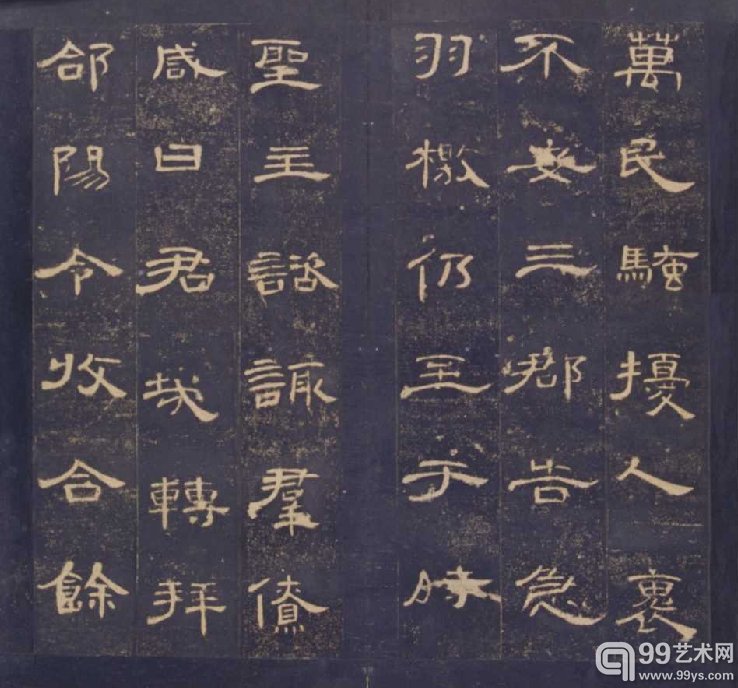 萬民騷擾人裹
不安三郡告急
羽檄仍至于時
聖主諮諏羣僚
咸曰君哉轉拜
郃陽令收合餘
99艺术网
www.99ys.com